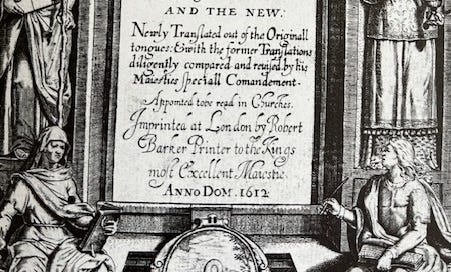 AND THE NEW:
Newly Translated out of the Originall
tongues: & with the former Translations
diligently compared and reuised by his
Maiesties speciall Comandement.
Appointed to be read in Churches.
Imprinted at London by Robert
Barker Printer to the Kings
most Excellent Maiestie
ANNO DOM. 1612